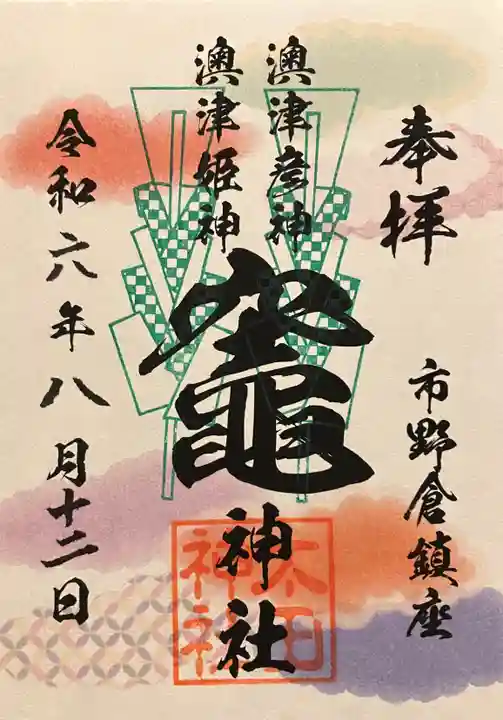 奉拝
市野倉鎮座
澳津彦神
澳津姫神
竈神社
太田神社
令和六年八月十二日